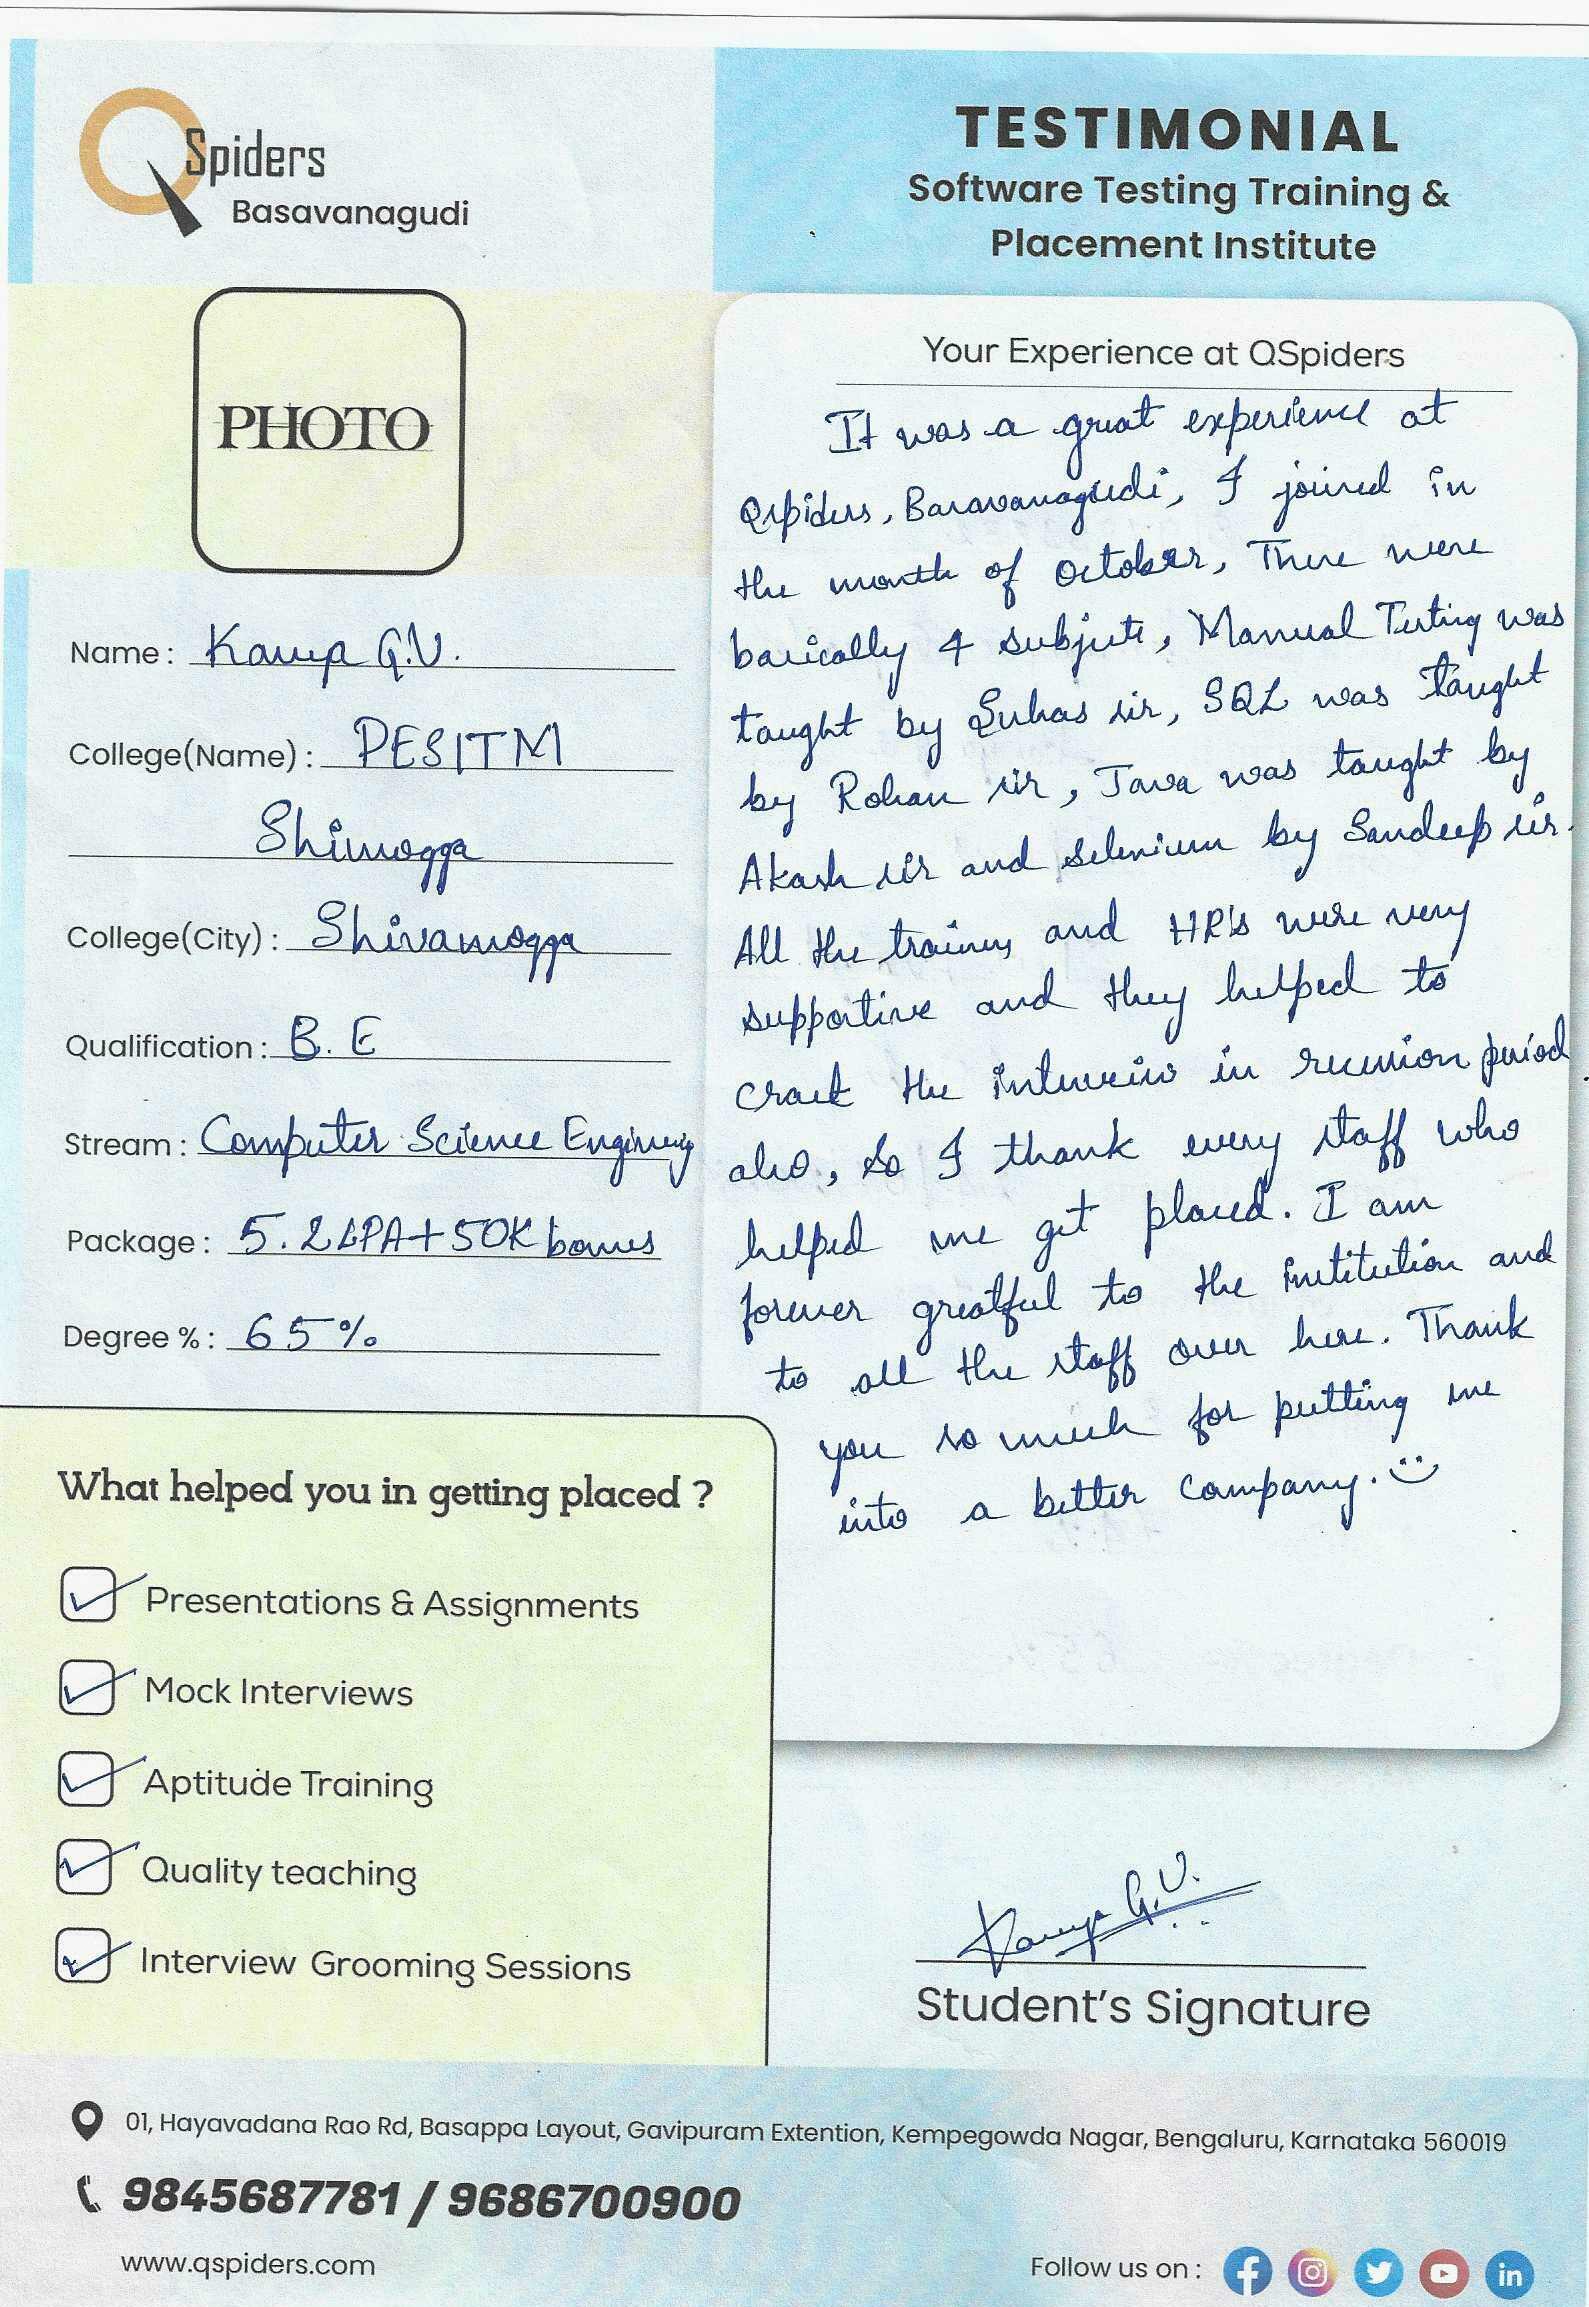 QSpiders
Basavanagudi
TESTIMONIAL
Software Testing Training &
Placement Institute
PHOTO
Name : Kavya G.V.
College(Name) : PESITM
Shimogga
College(City) : Shivamogga
Qualification : B.E
Stream : Computer Science Enginnering
Package : 5.2 LPA + 50K bonus
Degree % : 65%
Your Experience at QSpiders
It was a great experience at
Qspiders, Basavanagudi, I joined in
the month of October, There were
basically 4 subjects, Manual Testing was
taught by Suhas sir, SQL was taught
by Rohan sir, Java was taught by
Akash sir and selenium by Sandeep sir.
All the trainers and HR's were very
supportive and they helped to
crack the interview in recession period
also, So I thank every staff who
helped me get placed. I am
forever greatful to the institution and
to all the staff over here. Thank
you so much for putting me
into a better company.
What helped you in getting placed ?
Presentations & Assignments
Mock Interviews
Aptitude Training
Quality teaching
Interview Grooming Sessions
Kavya G.V.
Student's Signature
01, Hayavadana Rao Rd, Basappa Layout, Gavipuram Extention, Kempegowda Nagar, Bengaluru, Karnataka 560019
9845687781 / 9686700900
www.qspiders.com
Follow us on :